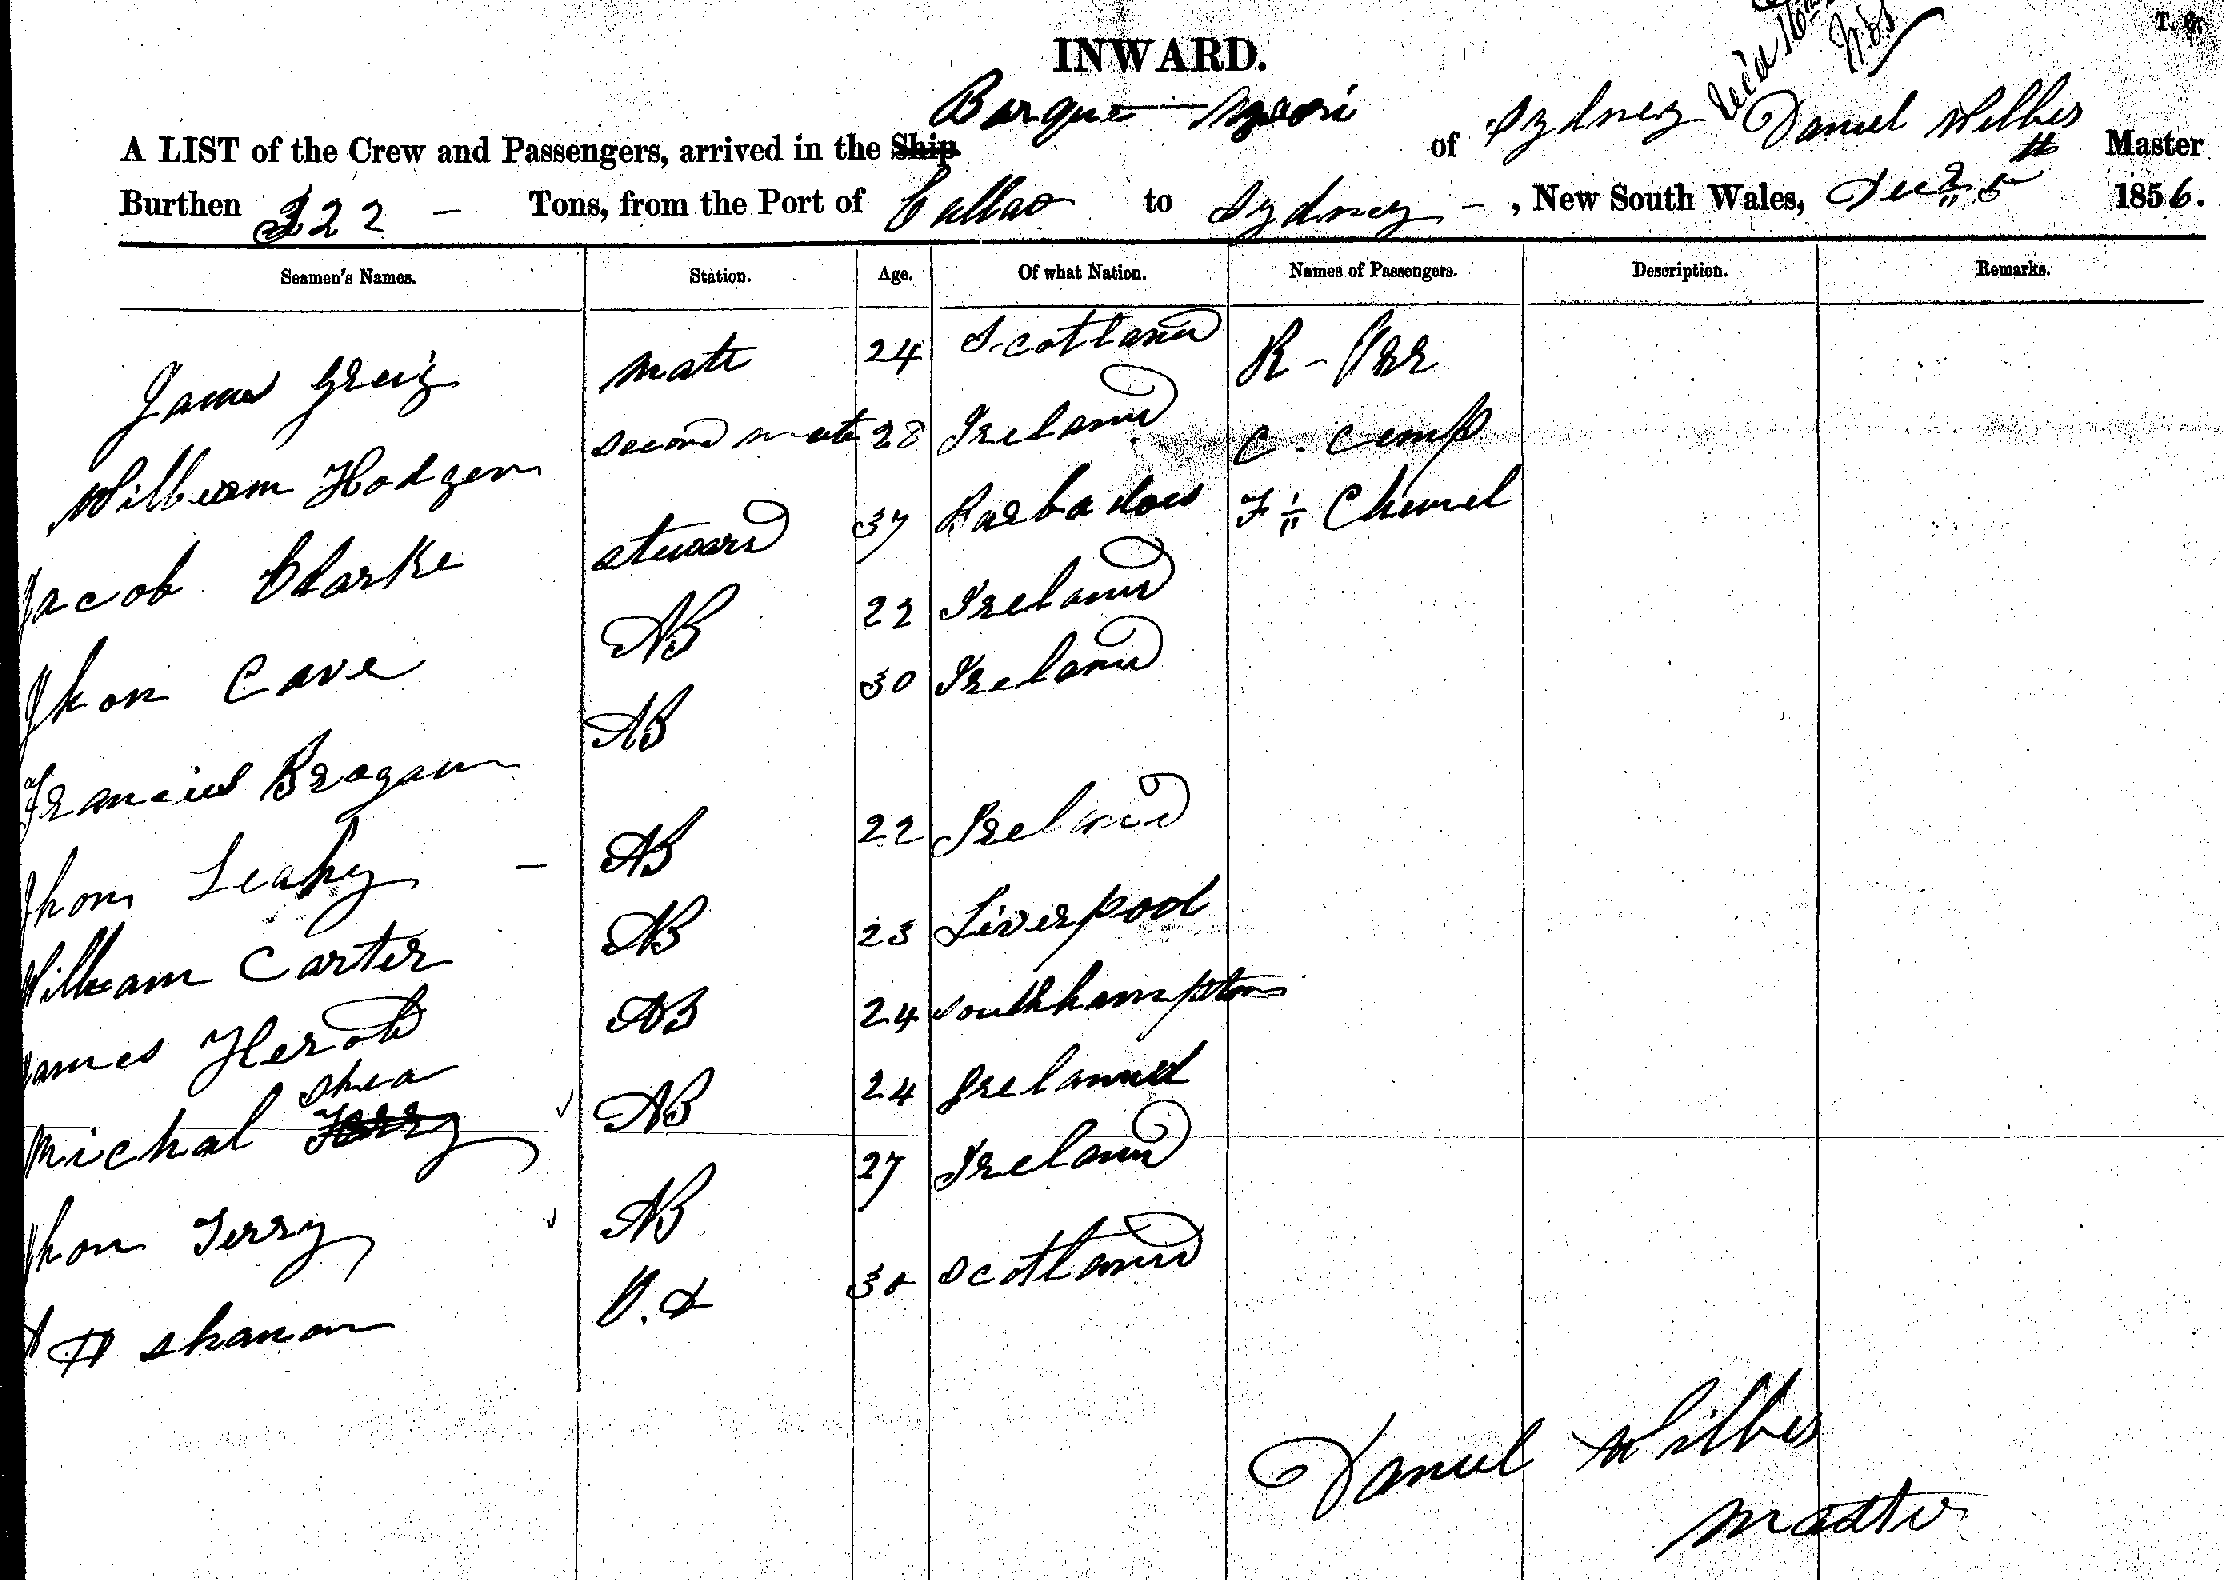 T. &
INWARD.
Barque
A LIST of the Crew and Passengers, arrived in the Ship of Sydney Daniel Master
Burthen 322 – Tons, from the Port of Callao to Sydney – , New South Wales, 5th 1856.
Seamen's Names. Station. Age. Of what Nation. Names of Passengers. Description. Remarks.
James Greig mate 24 Scotland R - Orr
William Hodgen second mate 28 Ireland C. Cemp
Jacob Clarke steward 37 Barbadoes
Jhon Cave AB 22 Ireland
Francis Brogan AB 30 Ireland
Jhon Leahy – AB 22 Ireland
William Carter AB 23 Liverpool
James AB 24 Southhampton
shea
Michal Terry AB 24 Irelannd
Jhon Terry AB 27 Ireland
shanon 30 Scotland
Daniel
Master